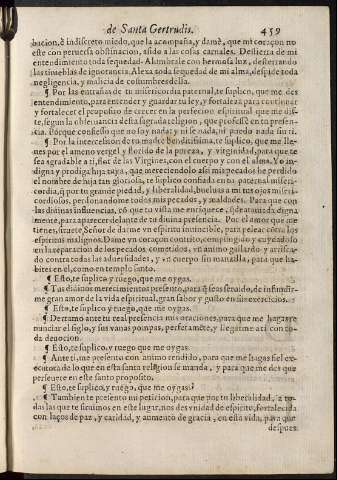 de Santa Gertrudis. 459
bacion, è indiscreto miedo, que la acompaña, y dame, que mi coraçon no
este con peruersa obstinacion, asido a las cosas carnales. Destierra de mi
entendimiento toda sequedad. Alumbrale con hermosa luz, desterrando
las tinieblas de ignorancia. Alexa toda sequedad de mi alma, despide toda
negligencia, y malicia de costumbres della.
¶ Por las entrañas de tu misericordia paternal, te suplico, que me des
entendimiento, para entender y guardar tu ley, y fortaleza para continuar
y fortalecer el proposito de crecer en la perfeccion espiritual que me dis-
te, segun la obseruancia desta sagrada religion, que professè en tu presen-
cia. Porque confiesso que no soy nada, y ni se nada, ni puedo nada sin ti.
¶ Por la intercession de tu madre benditissima, te suplico, que me lle-
ues por el ameno vergel y florido de la pureza, y virginidad, para que te
sea agradable a ti, flor de las Virgines, con el cuerpo y con el alma. Yo in-
digna y prodiga hija tuya, que mereciendolo assi mis pecados he perdido
el nombre de hija tan gloriosa, te suplico confiada en tu paternal miseri-
cordia, q̃ por tu grande piedad, y liberalidad, bueluas a mi tus ojos miseri-
cordiosos, perdonandome todos mis pecados, y maldades. Para que con
las diuinas influencias, cõ que tu vista me enriquece, sea adornada digna
mente, para aparecer delante de tu diuina presencia. Por el amor que me
tienes, siruete Señor de darme vn espiritu inuincible, para pelear cõtra los
espiritus malignos. Dame vn coraçon contrito, compungido y cuydadoso
en la reparacion de los pecados cometidos, vn animo gallardo y arrisca-
do contra todas las aduersidades, y vn cuerpo sin manzilla, para que ha-
bites en el, como en templo santo.
¶ Esto, te suplico y ruego, que me oygas.
¶ Tus diuinos merecimientos presento, para q̃ seas seruido, de infundir-
me gran amor de la vida espiritual, gran sabor y gusto en sus exercicios.
¶ Esto, te suplico y ruego, que me oygas.
¶ Derramo ante tu real presencia mis oraciones, para que me hagas re-
nunciar el siglo, y sus vanas pompas, perfectamẽte, y llegarme a ti con to-
da deuocion.
¶ Esto, te suplico, y ruego que me oygas.
¶ Ante ti, me presento con animo rendido, para que me hagas fiel exe-
cutora de lo que en esta santa religion se manda, y para que me des que
perseuere en este santo proposito.
¶ Esto, te suplico, y ruego, que me oygas.
¶ Tambien te presento mi peticion, para que por tu liberalidad, a to-
das las que te siruimos en este lugar, nos des vnidad de espiritu, fortalecida
con laços de paz, y caridad, y aumento de gracia, en esta vida, para que
despues